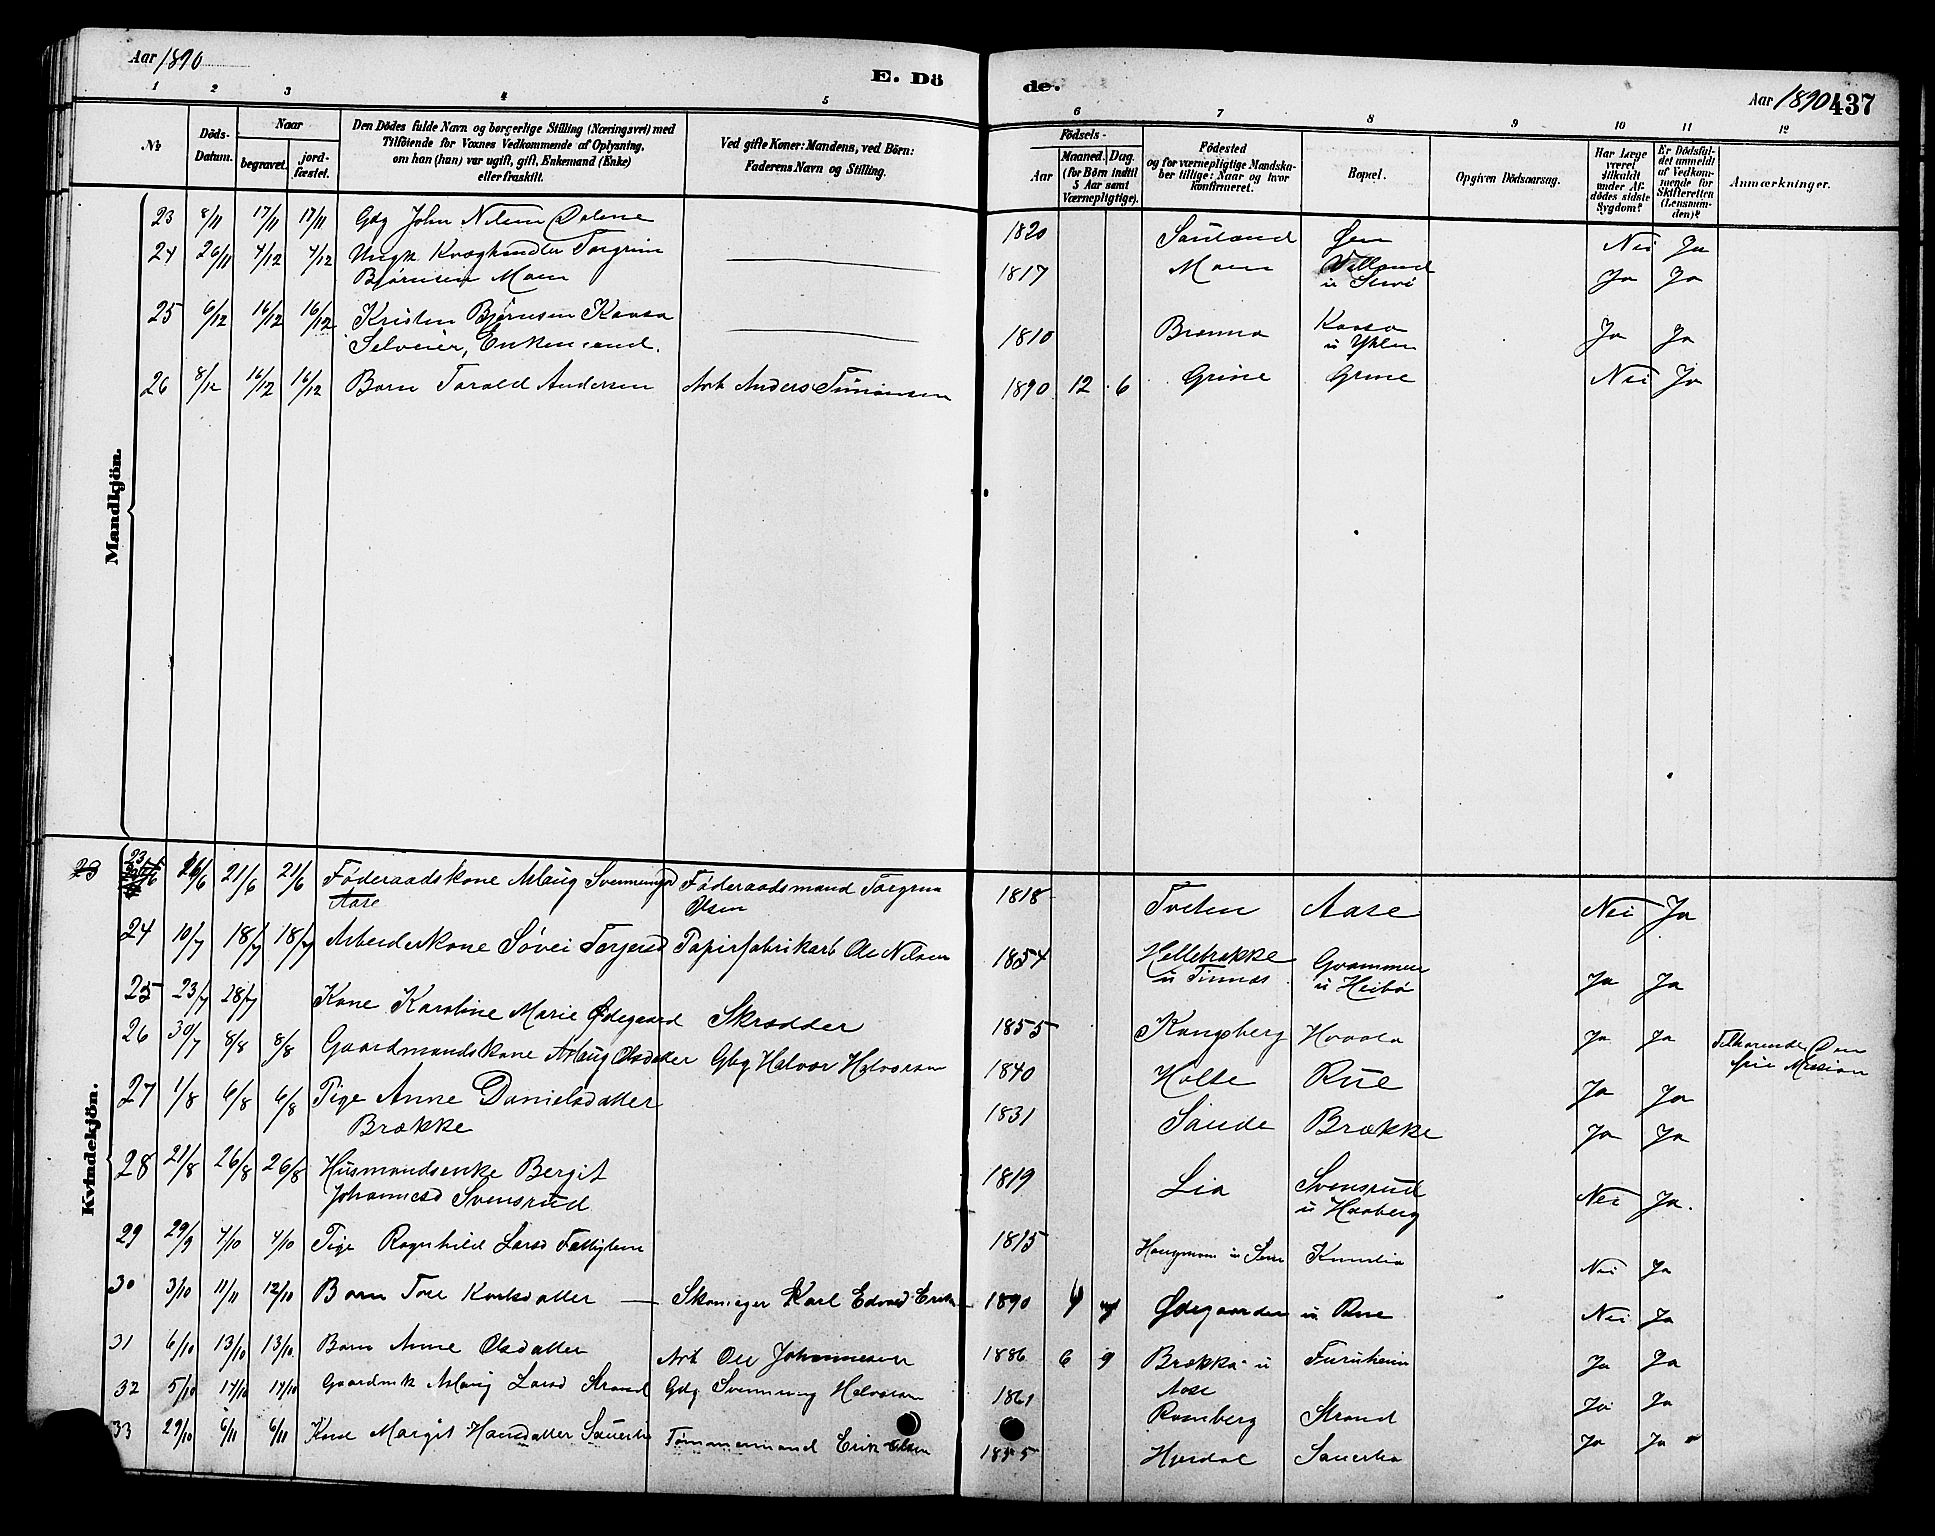 Aar 1890
E. Dö de.
Aar 1890 437
1 2 3 4 5 6 7 8 9 10 11 12
№
Döds-Datum.
Naar
begravet.
jordfæstet.
Den Dödes fulde Navn og borgerlige Stilling (Næringsvei) med
Tilföiende for Voxnes Vedkommende af Oplysning,
om han (hun) var ugift, gift, Enkemand (Enke)
eller fraskilt.
Ved gifte Koner: Mandens, ved Börn:
Faderens Navn og Stilling.
Födsels-
Aar
Maaned. Dag.
(for Börn indtil
5 Aar samt
Værnepligtige).
Födested
og for værnepligtige Mandskaber tillige: Naar og hvor
konfirmeret.
Bopæl.
Opgiven Dödsaarsag.
Har Læge været tilkaldt under Afdödes sidste Sygdom?
Er Dödsfaldet anmeldt af Vedkommende for Skifteretten (Lensmanden)?
Anmærkninger.
Mandkjön.
23 8/11 17/11 17/11 Gbg John Nilsen 1820 Sauland Øen Nei Ja
24 26/11 4/12 4/12 Ungk Kvæghandler Torgrim
Bjørnsen Moen 1817 Moen Ja Ja
25 6/12 16/12 16/12 Kristen Bjørnsen Kaasa
Selveier, Enkemand. 1810 Kaasa Ja Ja
26 8/12 16/12 16/12 Barn Torald Andersen Arb Anders Simonsen 1890 12 6 Grine Grine Nei Ja
Kvindekjön.
23 16/6 21/6 21/6 Føderaadskone Aslaug Svenningsd Føderaadsmand Torgrim
Aase Olsen 1818 Tveten Aase Nei Ja
24 10/7 18/7 18/7 Arbeiderkone Søvei Torgersd Papirfabrikarb Ole Nilsen 1854 Hellebrække
u Tinnes Grammen
u Heibø Ja Ja
25 23/7 28/7 Kone Karoline Marie Ødegaard Skrædder 1855 Kongsberg Ja Ja Tilhørende Den
frie Mission
26 30/7 8/8 8/8 Gaardmandskone Aslaug Olsdatter Gbg Halvor Halvorsen 1840 Holte Rue Ja Ja
27 1/8 6/8 6/8 Pige Anne Danielsdatter
Brække 1831 Sande Brække Ja Ja
28 21/8 26/8 26/8 Husmandsenke Bergit
Johannesd Svensrud 1819 Lia Svensrud
u Haaberg Nei Ja.
29 29/9 4/10 4/10 Pige Ragnhild Larsd 1815 Nei Ja
30 3/10 11/11 12/10 Barn Tone Karlsdatter Skomager Karl Edvard 1890 Ødegaarden u Rue Nei Ja
31 6/10 13/10 13/10 Barn Anne Olsdatter Arb Ole Johannesen 1886 6 9 Brække u
Aase Furuheim Ja Ja
32 5/10 14/10 14/10 Gaardmk Aslaug Larsd Strand Gbg Svenning Halvorsen 1861 Romberg Strand Ja Ja
33 29/10 6/11 6/11 Kone Margit Hansdatter Tømmermand Erik Olsen 1855 Ja Ja